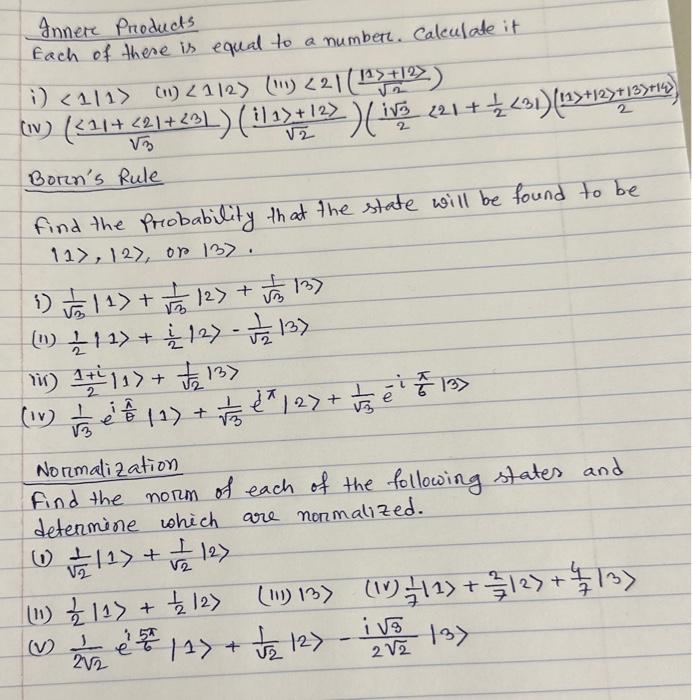 Inner Products
Each of these is equal to a number. Calculate it
i) <1|1> (ii) <1|2> (iii) <2|((|1>+|2>)/√2)
(iv) ((<1|+<2|+<3|)/√3)((i|1>+|2>)/√2)(i√3/2 <2|+1/2<3|)((|1>+|2>+|3>+|4>)/2)
Born's Rule
find the Probability that the state will be found to be
|1>, |2>, or |3>.
i) 1/√3 |1> + 1/√3 |2> + 1/√3 |3>
(ii) 1/2 |1> + i/2 |2> - 1/√2 |3>
iii) (1+i)/2 |1> + 1/√2 |3>
(iv) 1/√3 e^{iπ/6} |1> + 1/√3 e^{iπ} |2> + 1/√3 e^{-iπ/6} |3>
Normalization
Find the norm of each of the following states and
determine which are normalized.
(i) 1/√2 |1> + 1/√2 |2>
(ii) 1/2 |1> + 1/2 |2> (iii) |3> (iv) 1/7|1> + 2/7|2> + 4/7|3>
(v) 1/(2√2) e^{i5π/6} |1> + 1/√2 |2> - i√3/(2√2) |3>